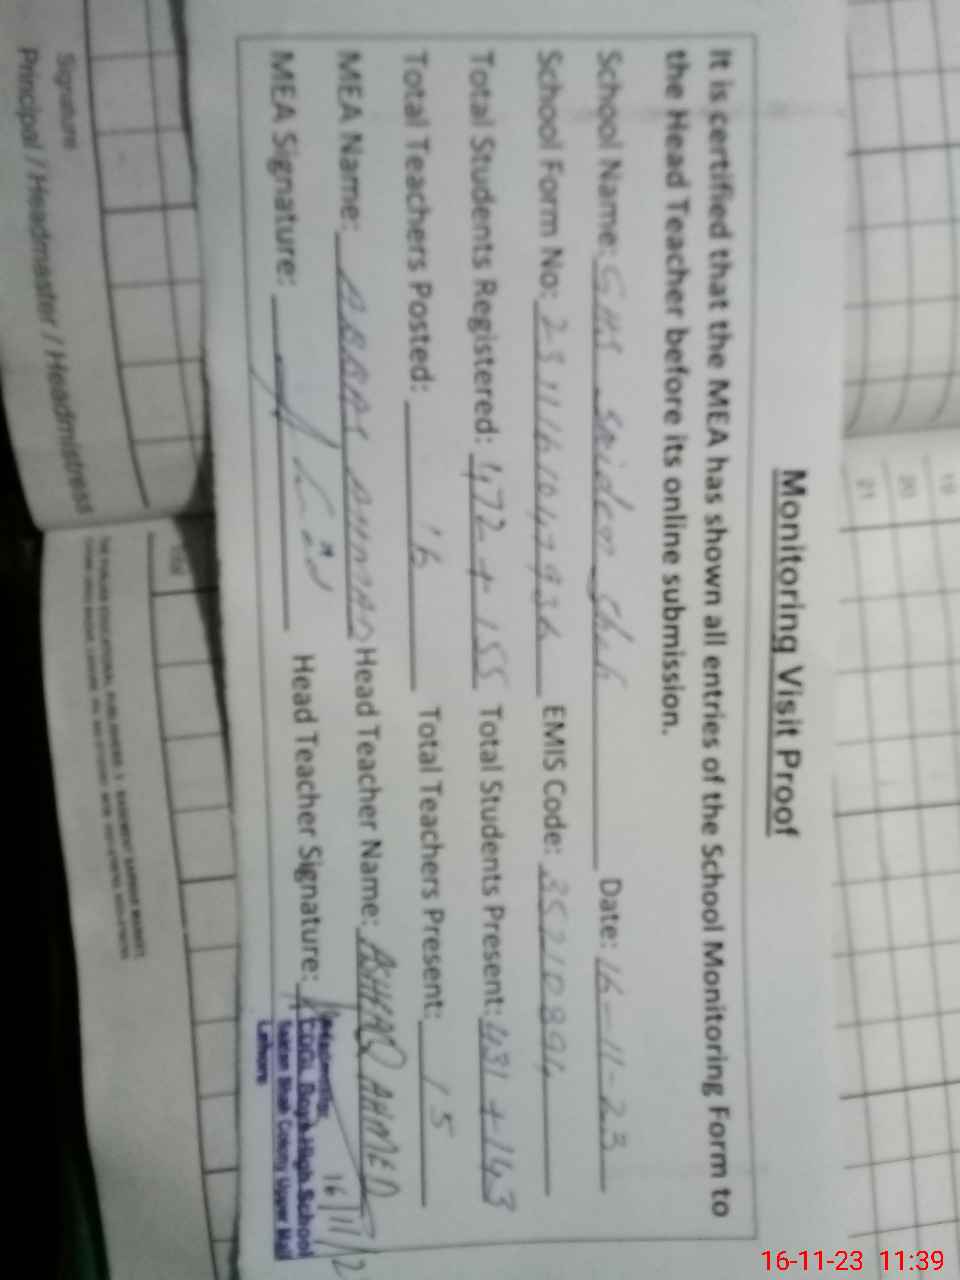 Monitoring Visit Proof
It is certified that the MEA has shown all entries of the School Monitoring Form to
the Head Teacher before its online submission.
School Name: GHS Date: 16-11-23
School Form No: EMIS Code: 35210894
Total Students Registered: 472 + 155 Total Students Present: 431 + 143
Total Teachers Posted: 16 Total Teachers Present: 15
MEA Name: Head Teacher Name: ASHFAQ AHMED
MEA Signature: Head Teacher Signature:
16/11/2
Headmaster
Govt. Boys High School
Colony Upper Mall
Lahore
Signature
Principal / Headmaster / Headmistress
19
20
21
16-11-23 11:39